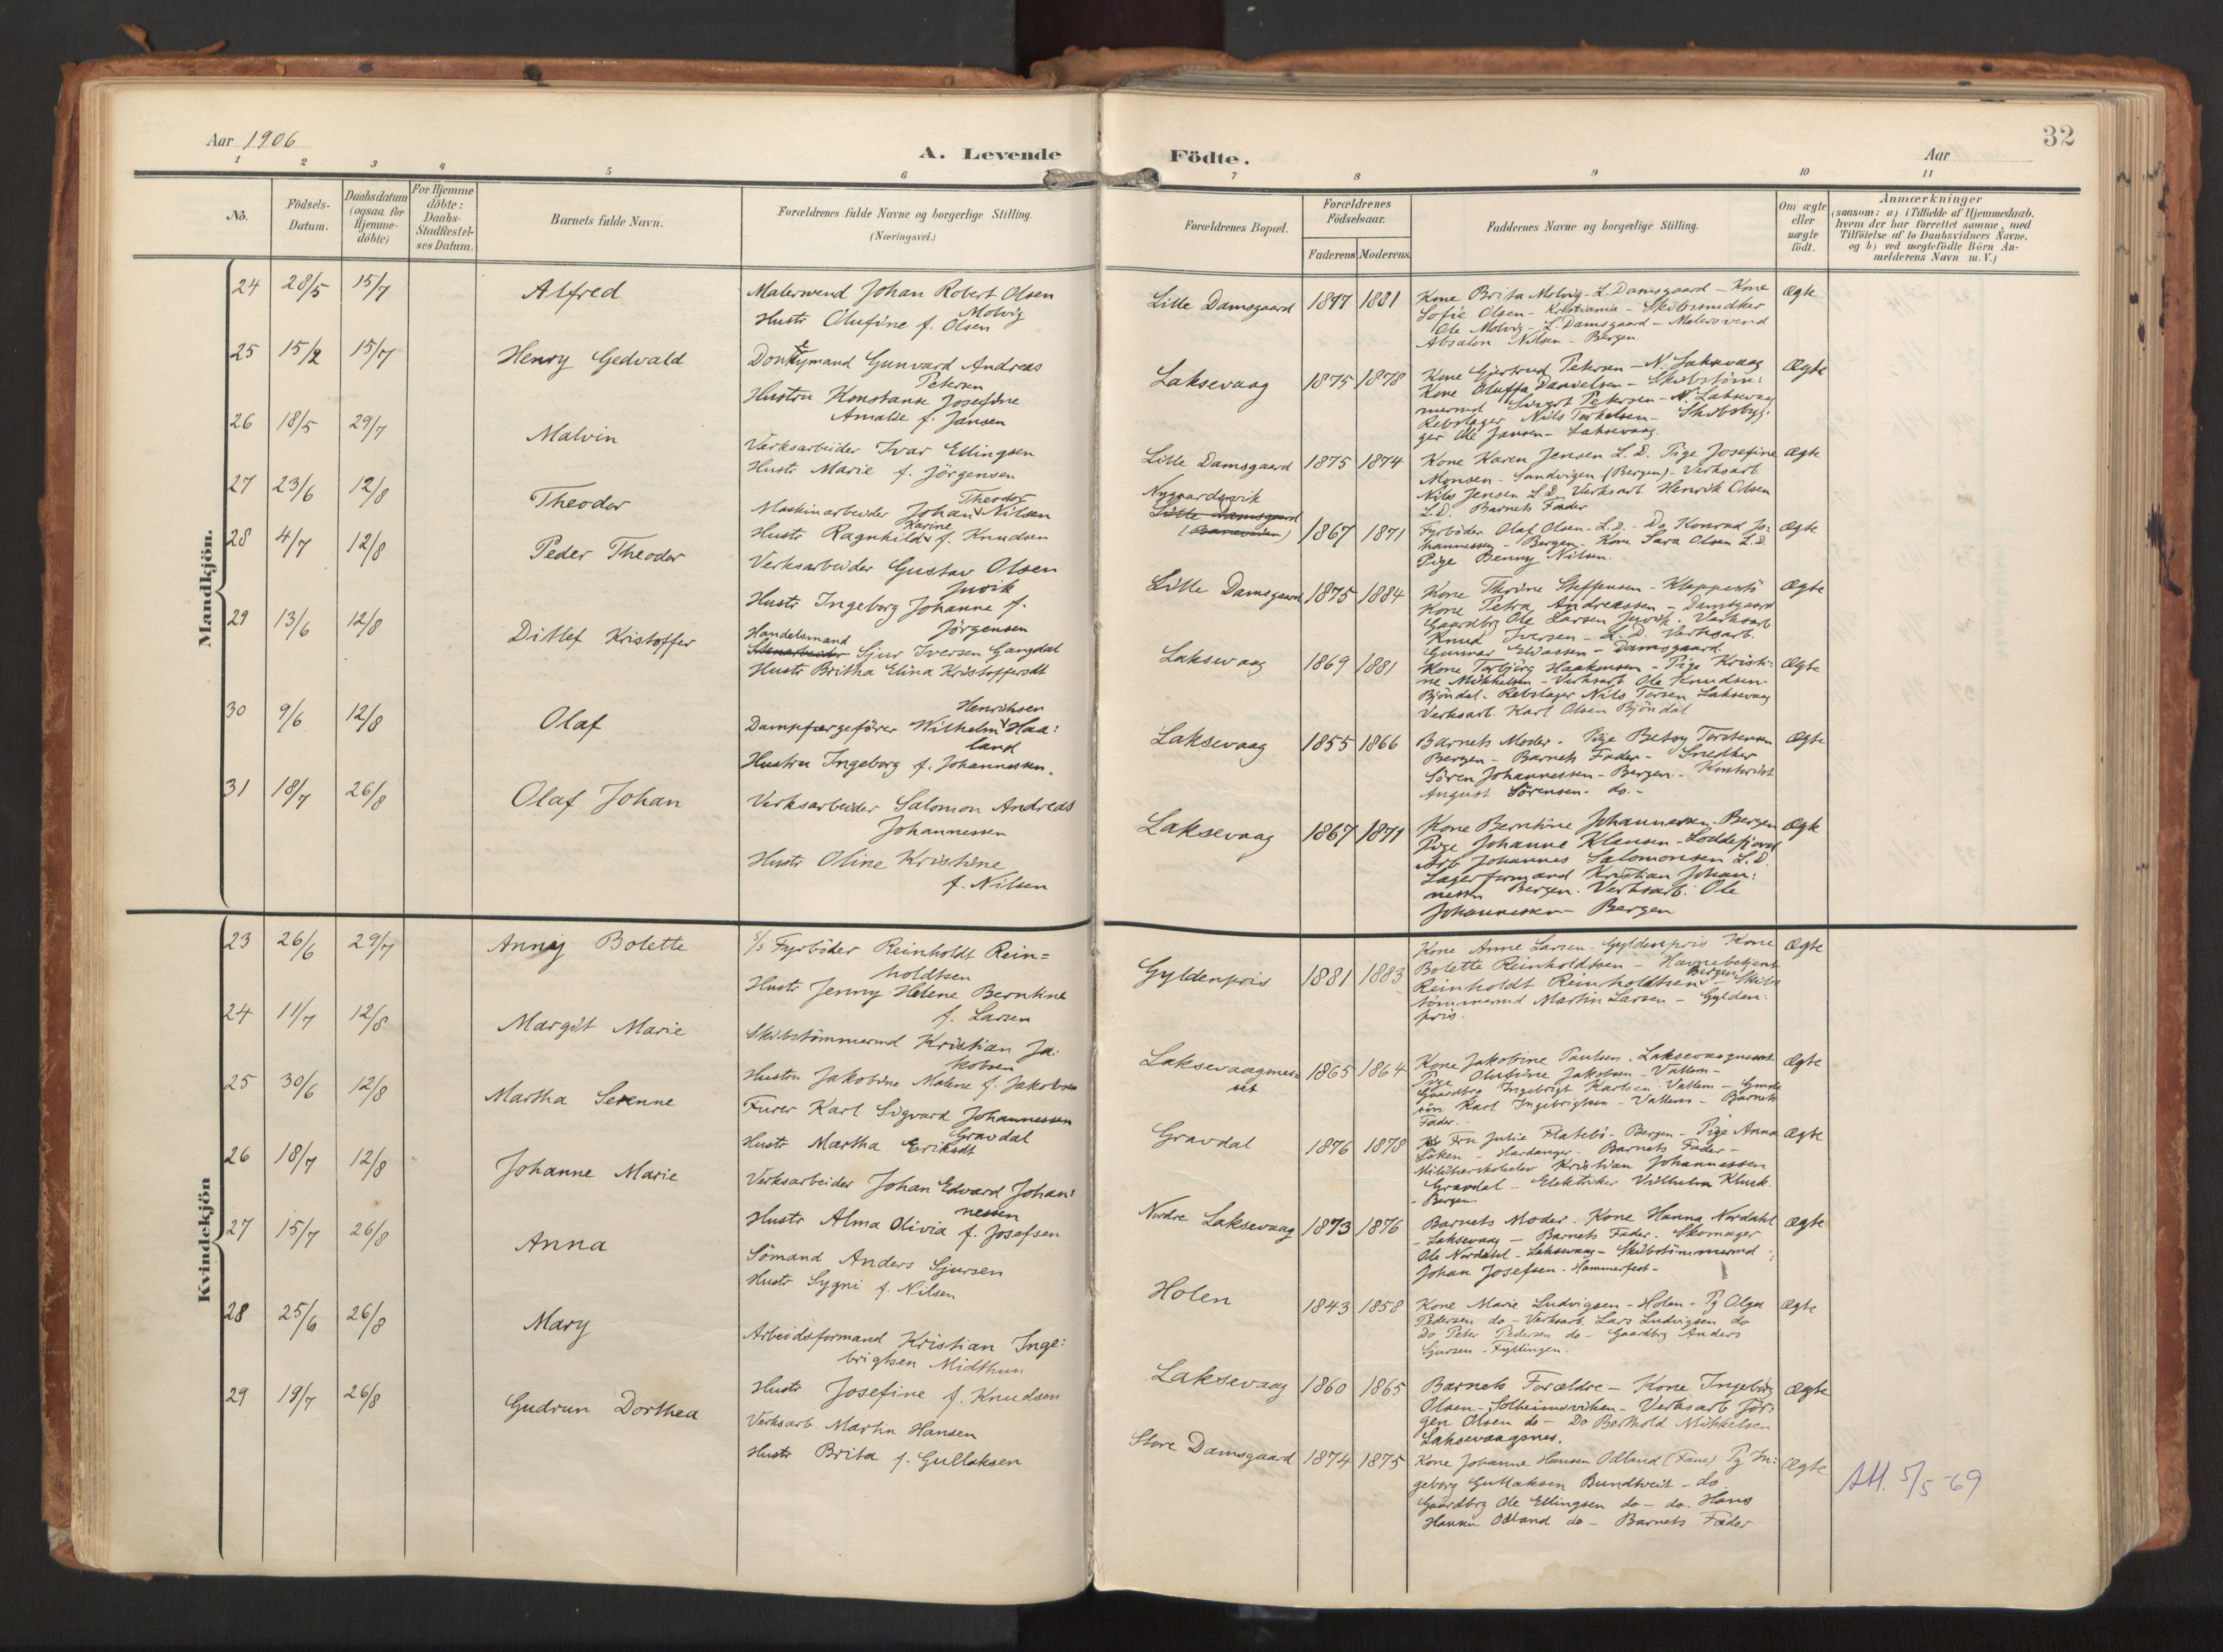 Aar 1906
A. Levende
1 2 3 4 5 6
No.
Födsels-
Datum.
Daabsdatum
(ogsaa for
Hjemme-
döbte)
For Hjemme
döbte:
Daabs-
Stadfæstel-
ses Datum.
Barnets fulde Navn.
Forældrenes fulde Navne og borgerlige Stilling.
(Næringsvei.)
Mandkjön.
24 28/5 15/7 Alfred
Malersvend Johan Robert Olsen
Molvig
Hustr Olufine f. Olsen
25 15/2 15/7 Henry Gedvald
Donkymand Gunvard Andreas
Petersen
Hustru Konstanse Josefine
Amalie f. Jansen
26 18/5 29/7 Malvin
Verksarbeider Ivar Ellingsen
Hustr Marie f. Jörgensen
27 23/6 12/8 Theodor
Theodor
Maskinarbeider Johan Nilsen
Karine
Hustr Ragnhild f. Knudsen
28 4/7 12/8 Peder Theodor
Verksarbeider Gustav Olsen
Juvik
Hustr Ingeborg Johanne f.
Jörgensen
29 13/6 12/8 Ditlef Kristoffer
Handelsmand
Sjur Iversen Gangdal
Hustr Britha Elina Kristoffersdt
30 9/6 12/8 Olaf
Henriksen
Dampfærgeförer Wilhelm Haa:
land
Hustru Ingeborg f. Johannessen.
31 18/7 26/8 Olaf Johan
Verksarbeider Salomon Andreas
Johannessen
Hustr Oline Kristine
f. Nilsen
Kvindekjön
23 26/6 29/7 Anny Bolette
S/S Fyrböder Reinholdt Rein=
holdtsen
Hustr Jenny Helene Berntine
f. Larsen
24 11/7 12/8 Margit Marie
Skibstömmermd Kristian Ja:
kobsen
Hustru Jakobine Malene f. Jakobsen
25 30/6 12/8 Martha Serenne
Furer Karl Sigvard Johannessen
Gravdal
Hustr Martha Eriksdt
26 18/7 12/8 Johanne Marie
Verksarbeider Johan Edvard Johan:
nessen
Hustr Alma Olivia f. Josefsen
27 15/7 26/8 Anna
Sömand Anders Sjursen
Hustr Sygni f. Nilsen
28 25/6 26/8 Mary
Arbeidsformand Kristian Inge:
brigtsen Midthun
Hustr Josefine f. Knudsen
29 19/7 26/8 Gudrun Dorthea
Verksarb. Martin Hansen
Hustr Brita f. Gullaksen
Födte.
Aar
32
7 8 9 10 11
Forældrenes Bopæl.
Forældrenes
Födselsaar.
Faderens Moderens
Faddernes Navne og borgerlige Stilling.
Om ægte
eller
uægte
födt.
Anmærkninger
(saasom: a) i Tilfælde af Hjemmedaab,
hvem der har forrettet samme, med
Tilföielse af to Daabsvidners Navne,
og b) ved uægtefödte Börn An-
melderens Navn m. V.)
Lille Damsgaard 1877 1881
Kone Brita Molvig - L. Damsgaard - Kone
Sofie Olsen - Kristiania - Skibssmedker
Ole Molvig - L. Damsgaard - Malersvend
Absalon Nilsen - Bergen.
Ægte
Laksevaag 1875 1878
Kone Gjertrud Petersen - N. Laksevaag
Kone Oluffa Danielsen - Skibstöm:
mermd Sivert Petersen - N. Laksevaag
Rebslager Nils Torkelsen - Skibsbyg:
ger Ole Jansen - Laksevaag.
Ægte
Lille Damsgaard 1875 1874
Kone Karen Jensen L. D. Pige Josefine
Monsen - Sandvigen (Bergen) - Verksarb.
Nils Jensen L. D. Verksarb Henrik Olsen
L.D. Barnets Fader
Ægte
Nygaardsvik
Lille Damsgaard
1867 1871
Fyrböder Olaf Olsen - L.D. - Do Konrad Jo:
hannessen - Bergen - Kone Sara Olsen L.D.
Pige Benny Nilsen.
Ægte
Lille Damsgaard 1875 1884
Kone Thrine Steffensen - Kleppestö
Kone Petra Andreassen - Damsgaard
Gaardbrg Ole Larsen Juvik. Verksarb
Knud Iversen - L.D. Verksarb.
Gunnar Eliassen - Damsgaard.
Ægte
Laksevaag 1869 1881
Kone Torbjörg Haakonsen - Pige Kristi:
ne Mikkelsen - Verksarb Ole Knudsen
Bjöndal - Rebslager Nils Torsen Laksevaag
Verksarb. Karl Olsen Bjöndal
Ægte
Laksevaag 1855 1866
Barnets Moder. Pige Betsy Torstensen
Bergen - Barnets Fader - Snedker
Sören Johannessen - Bergen - Kontorist
August Sörensen - do. -
Ægte
Laksevaag 1867 1871
Kone Berntine Johannessen Bergen
Pige Johanne Klausen - Loddefjord
Arb Johannes Salomonsen L.D.
Lagerformand Kristian Johan:
nessen Bergen. Verksarb. Ole
Johannessen - Bergen
Ægte
Gyldenpris 1881 1883
Kone Anne Larsen - Gyldenpris Kone
Bolette Reinholdtsen - Havnebetjent
Bergen
Reinholdt Reinholdtsen - Skibs
tömmermd Martin Larsen - Gylden:
pris.
Ægte
Laksevaagnes=
set
1865 1864
Kone Jakobine Paulsen. Laksevaagnesset
Pige Olufine Jakobsen - Vallem -
Gaardbrg Ingebrigt Karlsen Vallem - Gmds
sön Karl Ingebrigtsen - Vallem - Barnets
Fader. -
Ægte
Gravdal 1876 1878
Fru Julie Flatebö - Bergen - Pige Anna
Löken - Hardanger - Barnets Fader -
Kristian Johannessen
Gravdal - Elektriker Vilhelm Kluck.
- Bergen.
Ægte
Nordre Laksevaag 1873 1876
Barnets Moder. Kone Hanna Nordahl
- Laksevaag - Barnets Fader. Skomager
Ole Nordahl - Laksevaag - Skibstömmermd
Johan Josefsen - Hammerfest -
Ægte
Holen 1843 1858
Kone Marie Ludvigsen - Holen - Pg Olga
Pedersen do - Verksarb. Lars Ludvigsen do
Do Peter Pedersen do - Gaardbrg Anders
Sjursen - Fyllingen.
Ægte
Laksevaag 1860 1865
Barnets Forældre - Kone Ingeborg
Olsen - Solheimsviken - Verksarb Jör:
gen Olsen do - Do Berthold Mikkelsen
Laksevaagsnes.
Ægte
Store Damsgaard 1874 1875
Kone Johanne Hansen Odland (Fane) Pg In:
geborg Gullaksen Bundtveit - do.
Gaardbrg Ole Ellingsen do - do. Hans
Hansen Odland do - Barnets Fader
Ægte
Att. 5/5-69